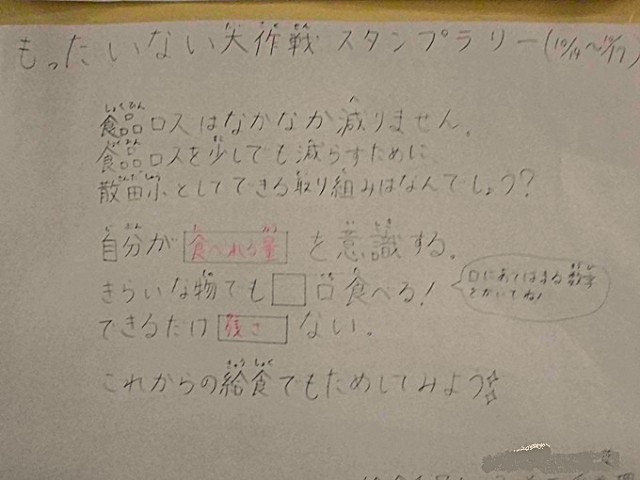 もったいない大作戦 スタンプラリー(10/14〜10/17)
食品ロスはなかなか減りません。
食品ロスを少しでも減らすために、
散田小としてできる取り組みはなんでしょう?
自分が 食べれる量 を意識する。
きらいな物でも□口食べる!
□にあてはまる数字
をかいてね!
できるだけ 残さ ない。
これからの給食でもためしてみよう☆